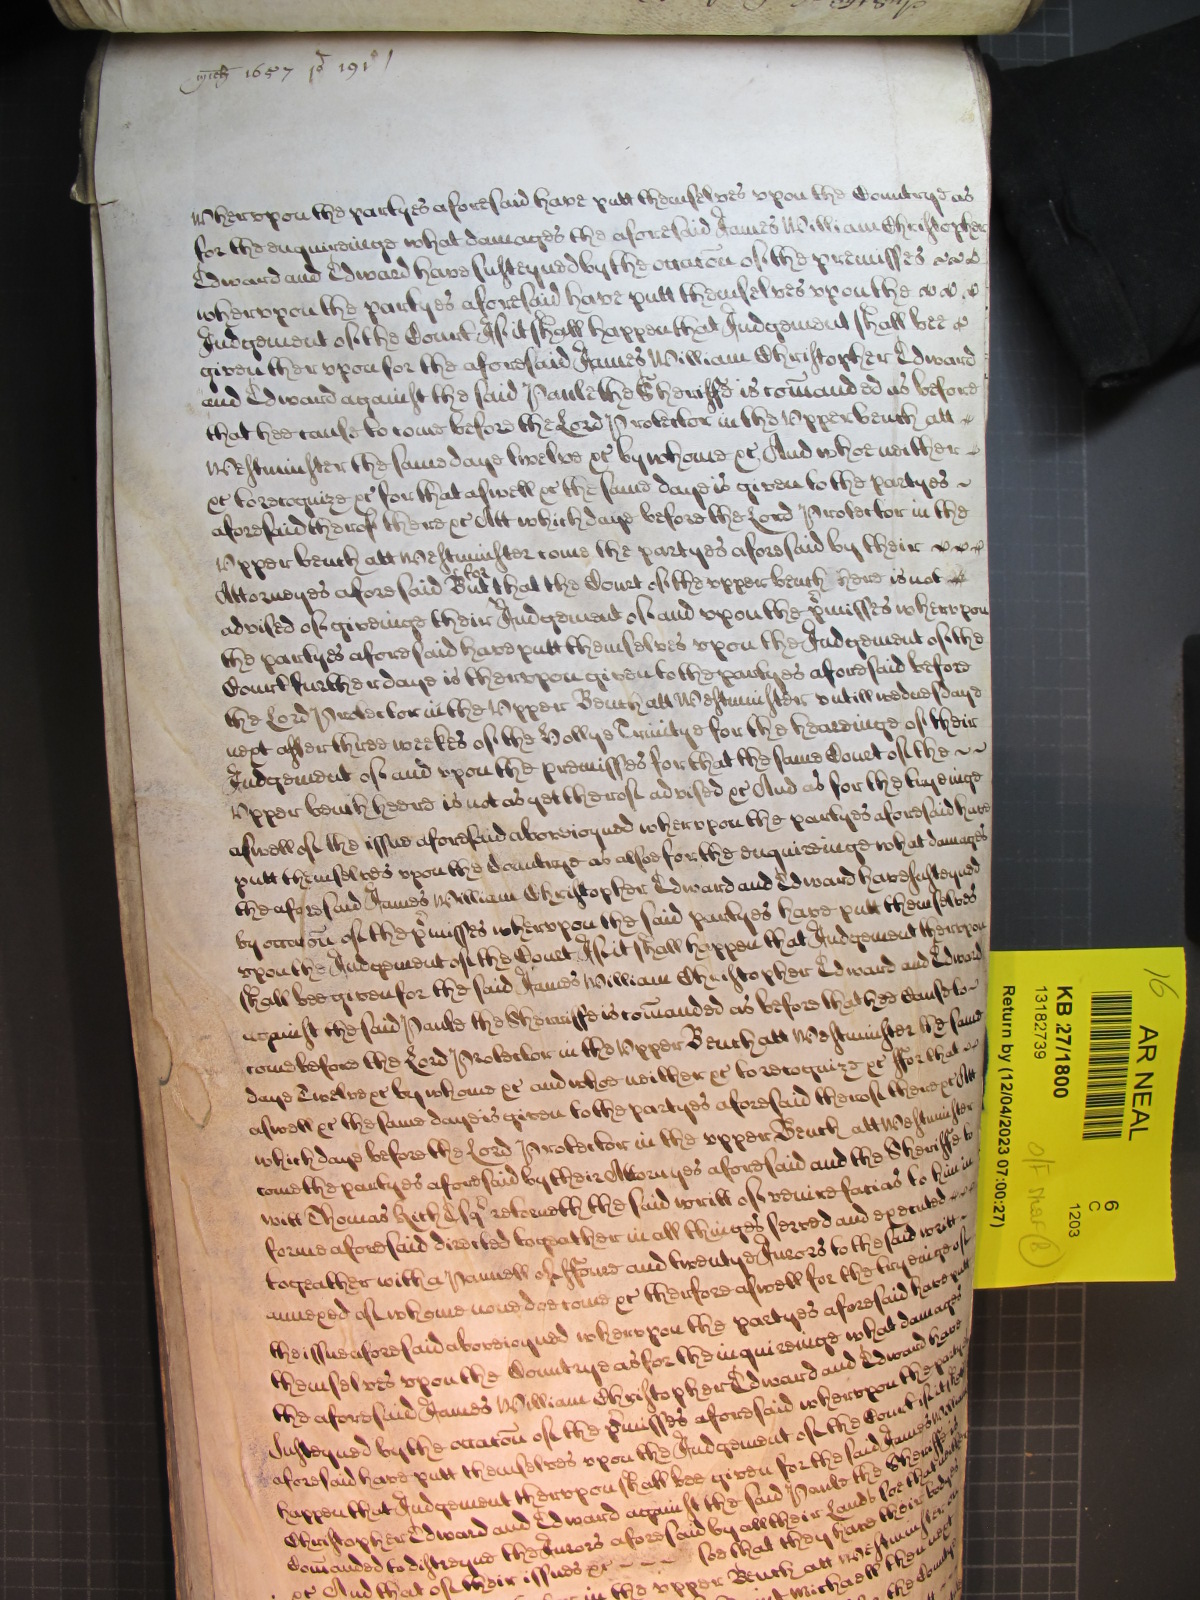 Mich 1657 pt 191
Wherupon the partyes aforesaid have putt themselves upon the Countrye as
for the enquireinge what damages the aforesaid James William Christopher
Edward and Edward have susteyned by the occacon of the premisses
wherupon the partyes aforesaid have putt themselves upon the
Judgement of the Court If it shall happen that Judgement shall bee
given therupon for the aforesaid James William Christopher Edward
and Edward against the said Paule the Sheriffe is comanded as before
that hee cause to come before the Lord Protector in the Upper bench att
Westminster the same daye twelve &c by whome &c And whoe neither
&c to recognize &c for that aswell &c the same daye is given to the partyes
aforesaid therof there &c Att which daye before the Lord Protector in the
Upper bench att Westminster come the partyes aforesaid by their
Attorneyes aforesaid But that the Court of the upper bench here is not
advised of giveinge their Judgement of and upon the pmisses wherupon
the partyes aforesaid have putt themselves upon the Judgement of the
Court further daye is therupon given to the partyes aforesaid before
the Lord Protector in the Upper Bench att Westminster untill wednesdaye
next after three weekes of the Hollye Trinitye for the heareinge of their
Judgement of and upon the premisses for that the same Court of the
Upper bench heere is not as yet therof advised &c And as for the tryeinge
aswell of the issue aforesaid abovejoyned wherupon the partyes aforesaid have
putt themselves upon the Countrye as alsoe for the enquireinge what damages
the aforesaid James William Christopher Edward and Edward have susteyned
by occacon of the pmisses wherupon the said partyes have putt themselves
upon the Judgement of the Court If it shall happen that Judgement therupon
shall bee given for the said James William Christopher Edward and Edward
against the said Paule the Sherriffe is comanded as before that hee cause to
come before the Lord Protector in the Upper Bench att Westminster the same
daye Twelve &c by whome &c and whoe neither &c to recognize &c ffor that
aswell &c the same daye is given to the partyes aforesaid therof there &c Att
which daye before the Lord Protector in the upper Bench att Westminster
come the partyes aforesaid by their Attorneyes aforesaid and the Sheriffe to
witt Thomas Esqr retorneth the said writt of venire facias to him in
forme aforesaid directed togeather in all thinges served and executed
togeather with a Pannell of ffoure and twentye Jurors to the said writt
annexed of whome none doe come &c therfore aswell for the tryeinge of
the issue aforesaid abovejoyned wherupon the partyes aforesaid have putt
themselves upon the Countrye as for the inquireinge what damages
the aforesaid James William Christopher Edward and Edward have
susteyned by the occacon of the pmisses aforesaid wherupon the partyes
aforesaid have putt themselves upon the Judgement of the Court if it shall
happen that Judgement therupon shall bee given for the said James William
Christopher Edward and Edward against the said Paule the Sheriffe is
Comanded to distreyne the Jurors aforesaid by all their Lands soe that neither
&c And that of their issues &c soe that they have their bodyes
in the upper Bench att Westminster
Michaell then next
the Countrye
AR NEAL
KB 27/1800
13182739
Return by (12/04/2023 07:00:27)
6
C
1203
16